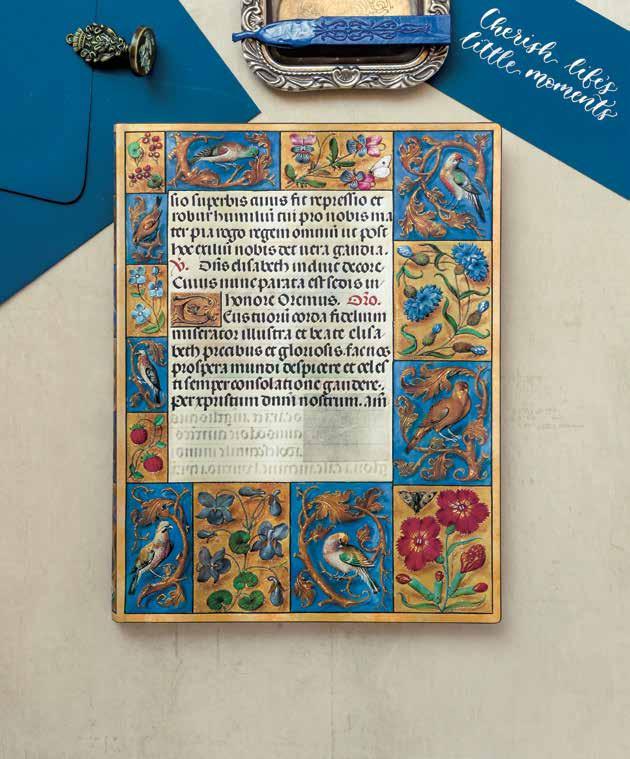 Cherish life's
little moments
sio superbis cuius fit repressio et
robur humiliū cui pro nobis ma
ter pia rogo regem omniū ut post
hoc exiliū nobis det uera gaudia
V. Dn̄s elisabeth induit decore.
Cuius nunc parata est sedis in
honore Oremus. Or̄o.
Eus tuorū corda fidelium
miserator illustra et beate elisa
beth precibus et gloriosis fac nos
prospera mundi despicere et celes
ti semper consolatione gaudere.
Per xp̄ristum dn̄m nostrum. Am̄